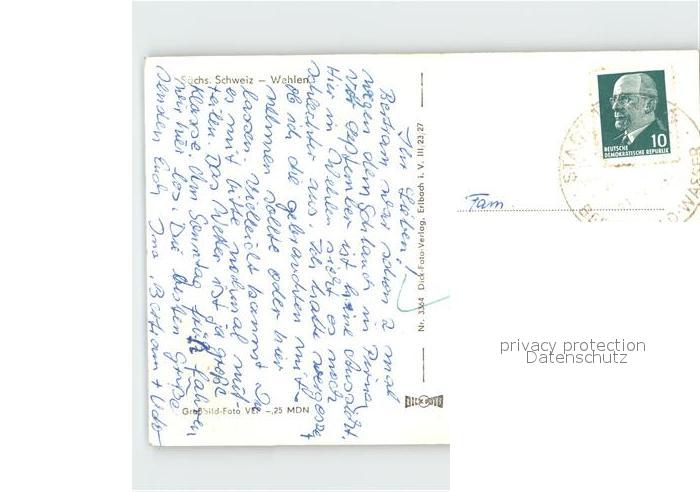 Sächs. Schweiz – Wehlen
Ihr Lieben!
Bertram war schon 2 mal
wegen dem Schlauch in Pirna
Vor September ist keine Aussicht.
Hier in Wehlen sieht es noch
schlechter aus. Ich hatte vergessen,
ob ich die gebrauchten mit-
nehmen sollte oder hier
lassen. Vielleicht kannst Du
es mir bitte nochmal mit-
teilen. Das Wetter ist ja große
Klasse. Am Sonntag früh fahren
wir hier los. Die besten Grüße
senden Euch Ina, Bertram + Udo
Großbild-Foto VEP –,25 MDN
Nr. 3364 Dick-Foto-Verlag, Erlbach i. V. III 23 27
DICK FOTO
Fam.
10
DEUTSCHE
DEMOKRATISCHE REPUBLIK
STADT
privacy protection
Datenschutz